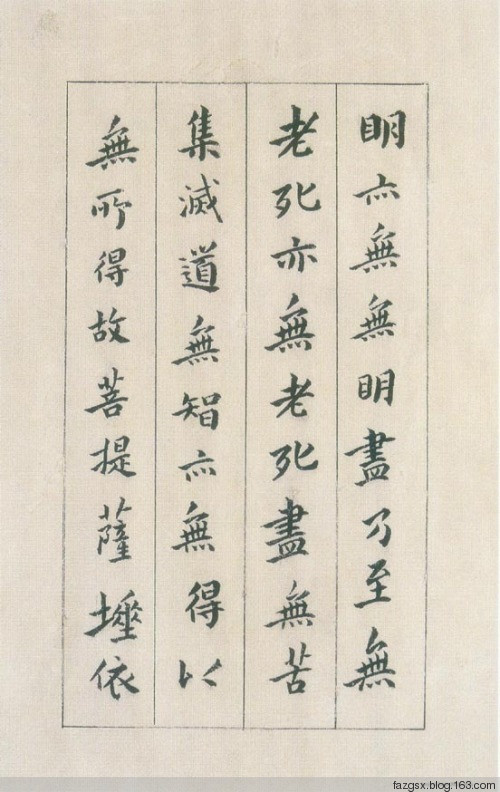 明亦無無明盡乃至無
老死亦無老死盡無苦
集滅道無智亦無得以
無所得故菩提薩埵依
fazgsx.blog.163.com